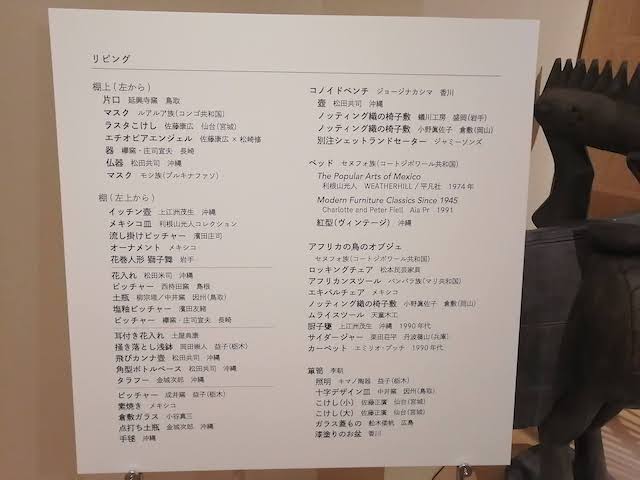 リビング
棚上(左から)
片口 延興寺窯 鳥取
マスク ルアルア族(コンゴ共和国)
ラスタこけし 佐藤康広 仙台(宮城)
エチオピアエンジェル 佐藤康広 × 松崎修
器 欅窯・庄司宜夫 長崎
仏器 松田共司 沖縄
マスク モシ族(ブルキナファソ)
棚(左上から)
イッチン壺 上江洲茂生 沖縄
メキシコ皿 利根山光人コレクション
流し掛けピッチャー 濱田庄司
オーナメント メキシコ
花巻人形 獅子舞 岩手
花入れ 松田米司 沖縄
ピッチャー 西持田窯 島根
土瓶 柳宗理/中井窯 因州(鳥取)
塩釉ピッチャー 濱田友緒
ピッチャー 欅窯・庄司宜夫 長崎
耳付き花入れ 土屋典康
掻き落とし浅鉢 岡田崇人 益子(栃木)
飛びカンナ壺 松田共司 沖縄
角型ボトルベース 松田共司 沖縄
タラフー 金城次郎 沖縄
ピッチャー 成井窯 益子(栃木)
素焼き メキシコ
倉敷ガラス 小谷真三
点打ち土瓶 金城次郎 沖縄
手毬 沖縄
コノイドベンチ ジョージナカシマ 香川
壺 松田共司 沖縄
ノッティング織の椅子敷 蟻川工房 盛岡(岩手)
ノッティング織の椅子敷 小野眞佐子 倉敷(岡山)
別注シェットランドセーター ジャミーソンズ
ベッド セヌフォ族(コートジボワール共和国)
The Popular Arts of Mexico
利根山光人 WEATHERHILL / 平凡社 1974年
Modern Furniture Classics Since 1945
Charlotte and Peter Fiell Aia Pr 1991
紅型(ヴィンテージ) 沖縄
アフリカの鳥のオブジェ
セヌフォ族(コートジボワール共和国)
ロッキングチェア 松本民芸家具
アフリカンスツール バンバラ族(マリ共和国)
エキパルチェア メキシコ
ノッティング織の椅子敷 小野眞佐子 倉敷(岡山)
ムライスツール 天童木工
厨子甕 上江洲茂生 沖縄 1990年代
サイダージャー 柴田荘平 丹波篠山(兵庫)
カーペット エミリオ・プッチ 1990年代
箪笥 李朝
照明 キマノ陶器 益子(栃木)
十字デザイン皿 中井窯 因州(鳥取)
こけし(小) 佐藤正廣 仙台(宮城)
こけし(大) 佐藤正廣 仙台(宮城)
ガラス蓋もの 舩木倭帆 広島
漆塗りのお盆 香川